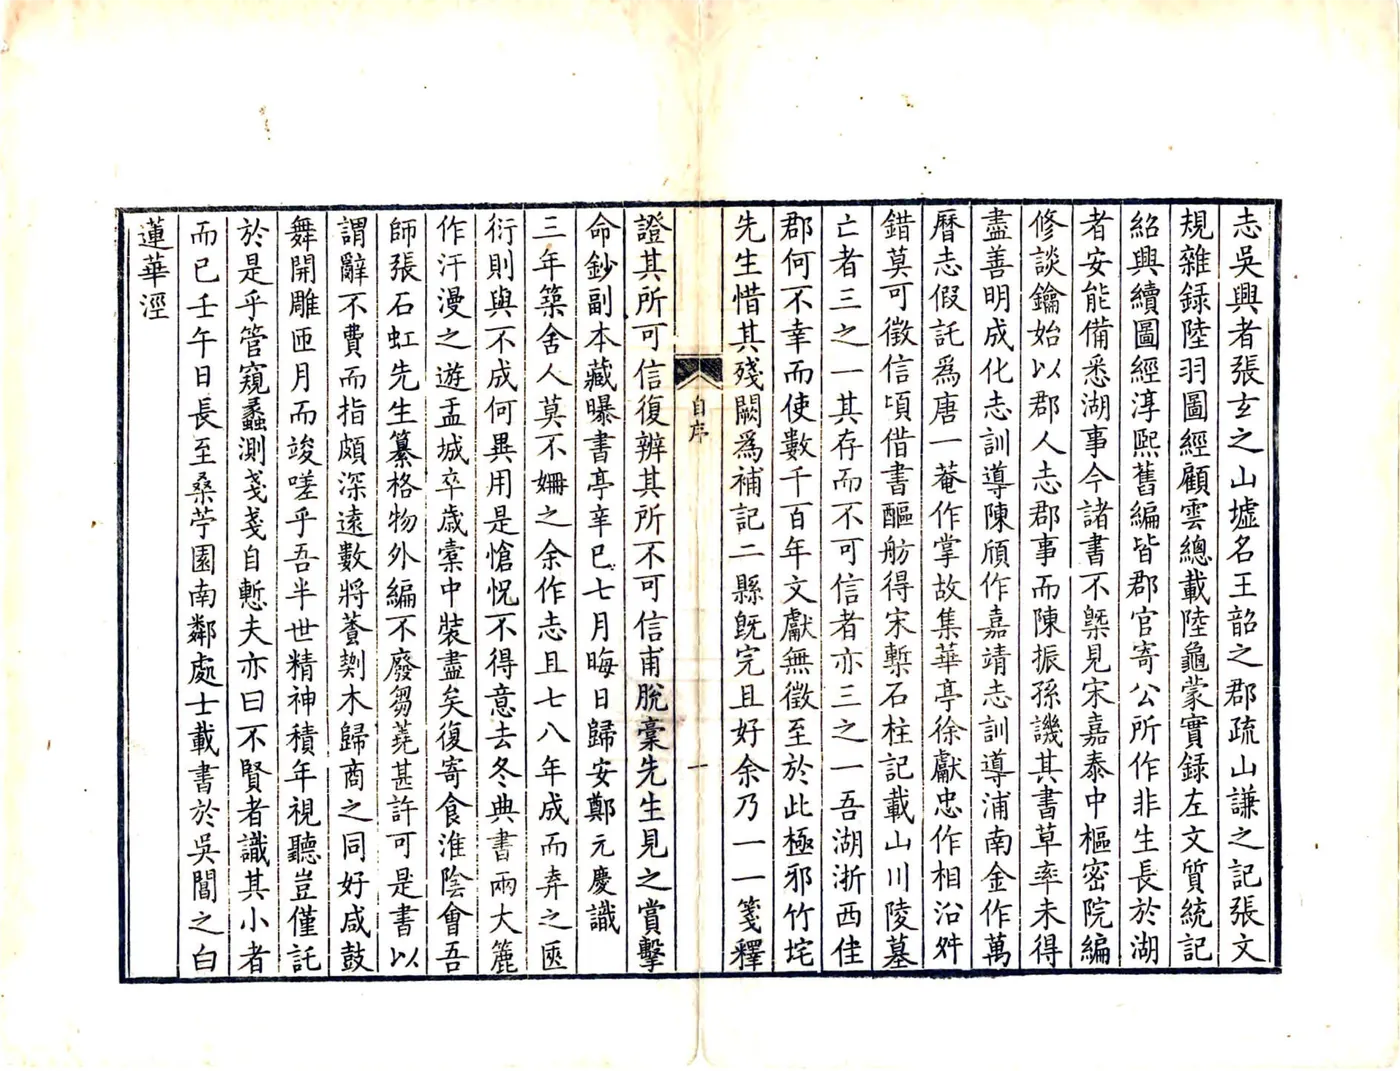 志吳興者張玄之山墟名王韶之郡疏山謙之記張文
規雜録陸羽圖經顧雲總載陸龜蒙實録左文質統記
紹興續圖經淳熙舊編皆郡官寄公所作非生長於湖
者安能備悉湖事今諸書不槩見宋嘉泰中樞密院編
修談鑰始以郡人志郡事而陳振孫譏其書草率未得
盡善明成化志訓導陳頎作嘉靖志訓導浦南金作萬
曆志假託爲唐一菴作掌故集華亭徐獻忠作相沿舛
錯莫可徵信頃借書𨢑舫得宋槧石柱記載山川陵墓
亡者三之一其存而不可信者亦三之一吾湖浙西佳
郡何不幸而使數千百年文獻無徵至於此極邪竹垞
先生惜其殘闕爲補記二縣旣完且好余乃一一箋釋
自序
一
證其所可信復辨其所不可信甫脫稾先生見之賞擊
命鈔副本藏曝書亭辛巳七月晦日歸安鄭元慶識
三年築舍人莫不姍之余作志且七八年成而弃之匧
衍則與不成何異用是愴怳不得意去冬典書兩大簏
作汗漫之遊盂城卒歲橐中裝盡矣復寄食淮陰會吾
師張石虹先生纂格物外編不廢芻蕘甚許可是書以
謂辭不費而指頗深遠數將蒼剡木歸商之同好咸鼓
舞開雕匝月而竣嗟乎吾半世精神積年視聽豈僅託
於是乎管窺蠡測戔戔自慙夫亦曰不賢者識其小者
而已壬午日長至桑苧園南鄰處士載書於吳閶之白
蓮華涇